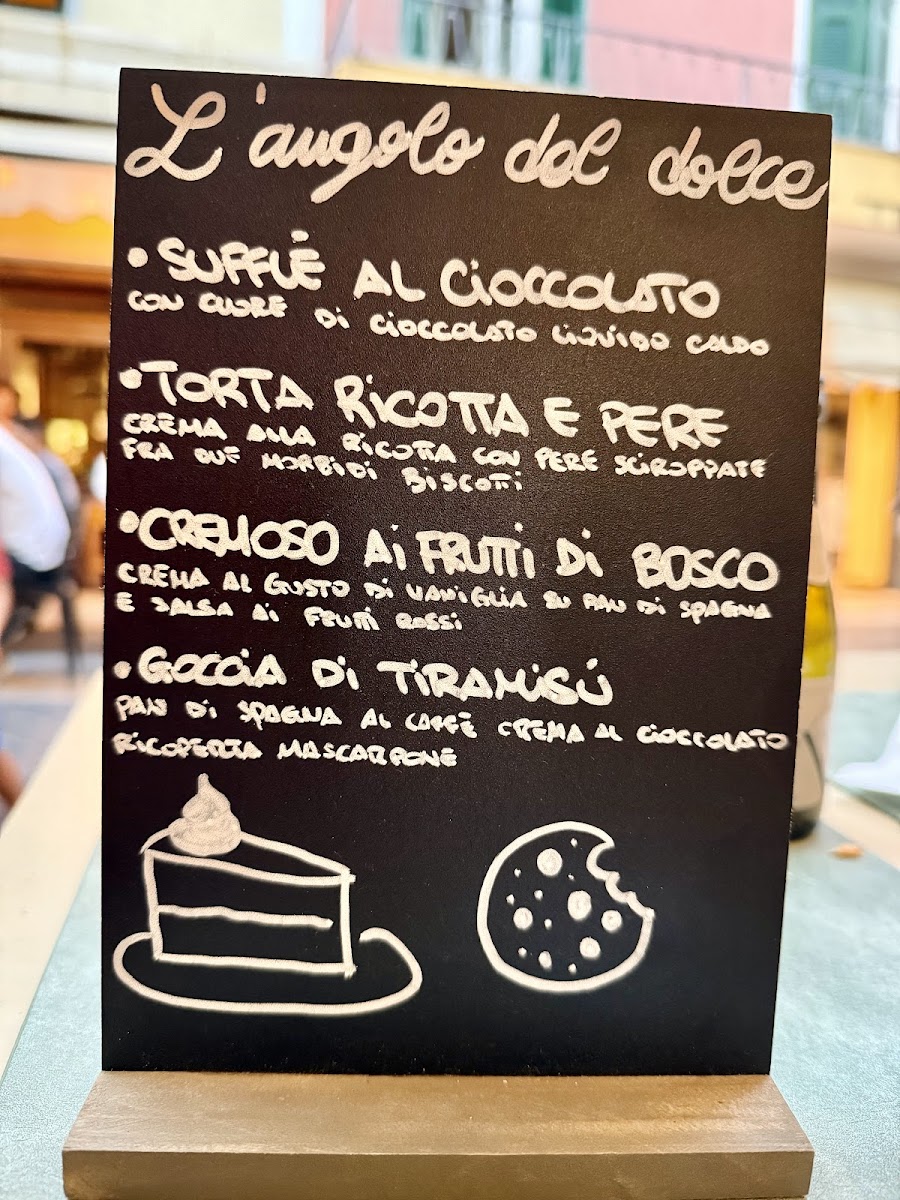 L'angolo del dolce
• SUFFLÈ AL CiOCCOLATO
CON CUORE Di CiOCCOLATO LiQUiDO CALDO
• TORTA RiCOTTA E PERE
CREMA ALLA RiCOTTA CON PERE SCiROPPATE
FRA DUE MORBiDi BiSCOTTi
• CREMOSO Ai FRUTTi Di BOSCO
CREMA AL GUSTO Di VANiGLiA SU PAN Di SPAGNA
E SALSA Ai FRUTTi ROSSi
• GOCCiA Di TiRAMiSÚ
PAN Di SPAGNA AL CAFFÈ CREMA AL CiOCCOLATO
RiCOPERTA MASCARPONE